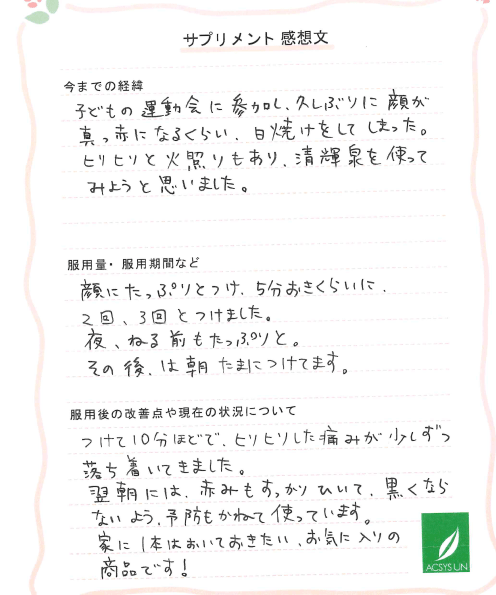 サプリメント 感想文
今までの経緯
子どもの運動会に参加し、久しぶりに顔が
真っ赤になるくらい、日焼けをしてしまった。
ヒリヒリと火照りもあり、清輝泉を使って
みようと思いました。
服用量・服用期間など
顔にたっぷりとつけ、5分おきくらいに、
2回、3回とつけました。
夜、ねる前もたっぷりと。
その後、は朝たまにつけてます。
服用後の改善点や現在の状況について
つけて10分ほどで、ヒリヒリした痛みが少しずつ
落ち着いてきました。
翌朝には、赤みもすっかりひいて、黒くなら
ないよう、予防もかねて使っています。
家に1本はおいておきたい、お気に入りの
商品です!
ACSYSUN